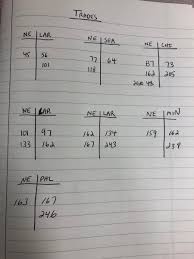 TRADES
NE LAR
45 56
101
NE SEA
77 64
118
NE CHI
87 73
162 205
48
NE LAR
101 97
133 162
NE LAR
162 134
167 243
NE MIN
159 162
239
NE PHL
163 167
246